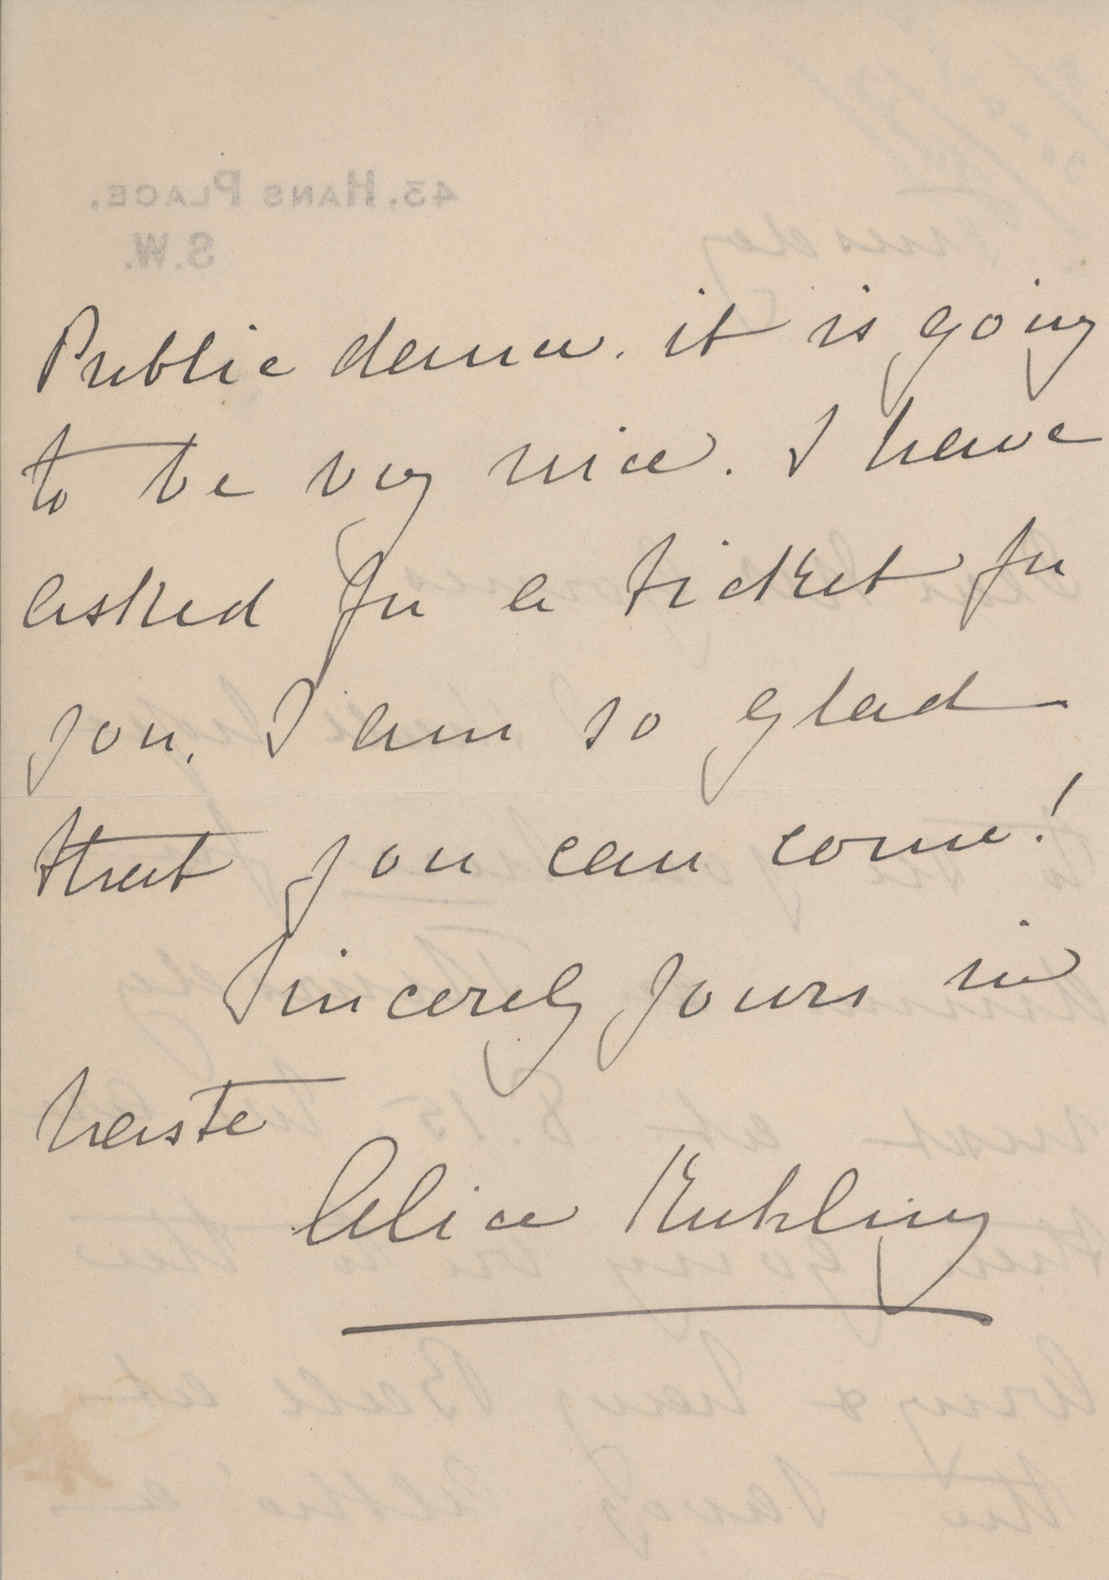 Public dance. it is going
to be very nice. I have
asked for a ticket for
you. I am so glad
that you can come!
Sincerely yours in
haste
Alice
43, HANS PLACE,
S.W.